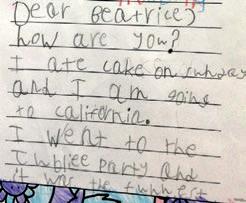 Dear Beatrice,
how are you?
I ate cake on sunday
and I am going
to california.
I went to the
Jubliee party and
it was the funnest